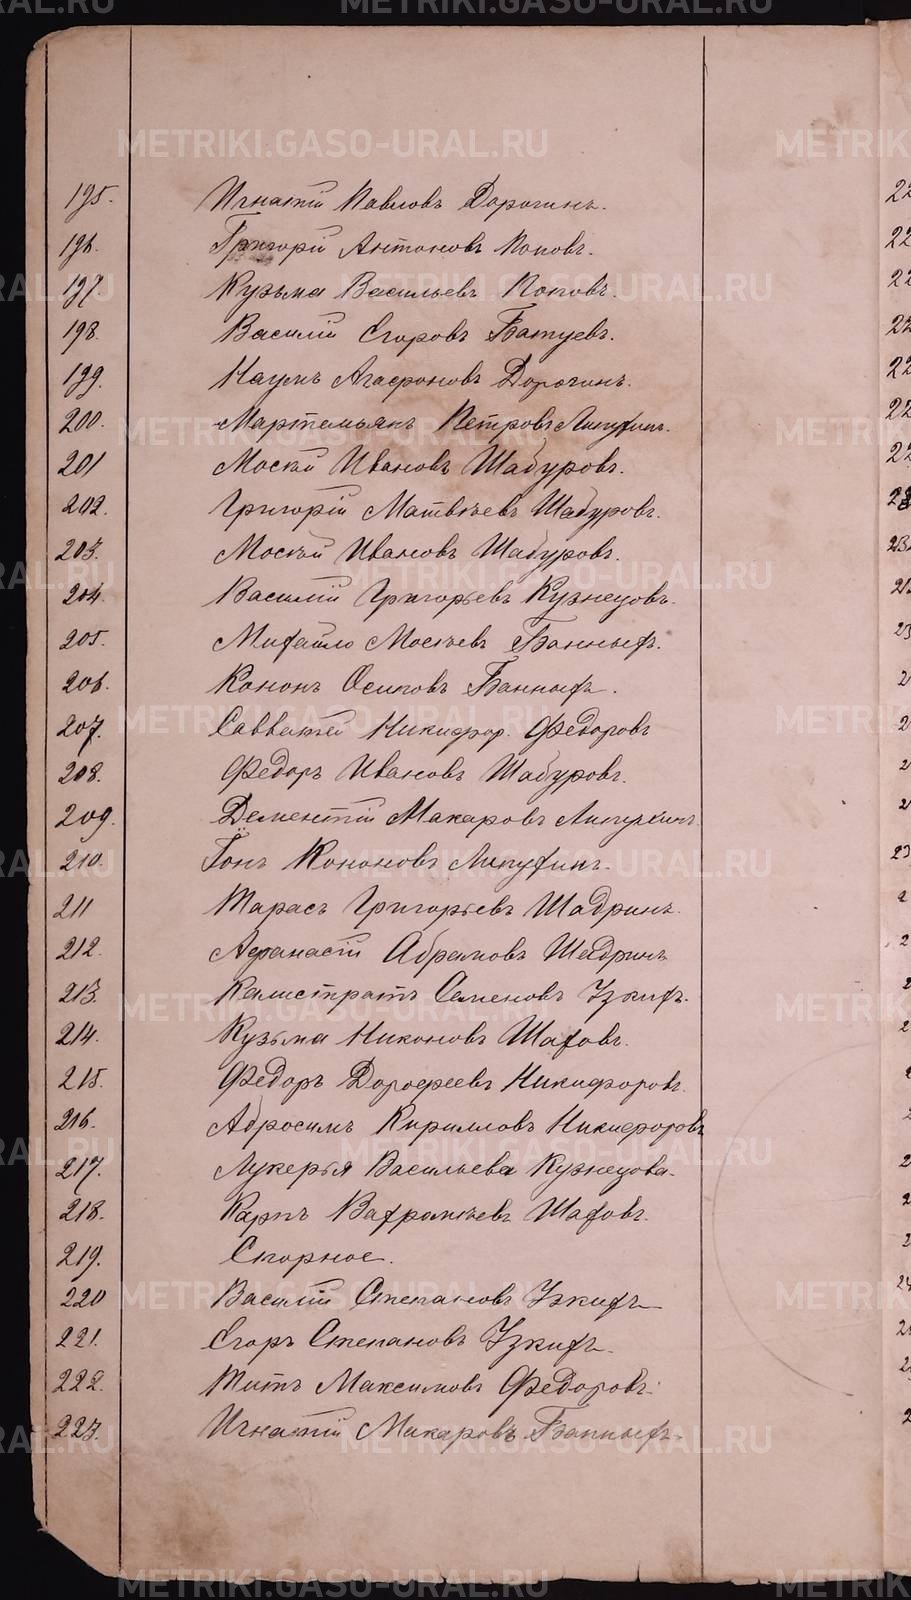 195. Игнатій Павловъ Дорогинъ.
196. Григорій Антоновъ Поповъ.
197. Кузьма Васильевъ Поповъ.
198. Василій Егоровъ Батуевъ.
199. Наумъ Агафоновъ Дорогинъ.
200. Мартемьянъ Петровъ Липухинъ.
201 Моисѣй Ивановъ Шабуровъ.
202. Григорій Матвѣевъ Шабуровъ.
203. Моисѣй Ивановъ Шабуровъ.
204. Василій Григорьевъ Кузнецовъ.
205. Михайло Мосѣевъ Банныхъ.
206. Кононъ Осиповъ Банныхъ.
207. Савватей Никифор. Федоровъ
208. Федоръ Ивановъ Шабуровъ.
209. Дементій Макаровъ Липухинъ
210. Іонъ Кононовъ Липухинъ.
211 Тарасъ Григорьевъ Шадринъ.
212. Афанасій Абрамовъ Шадринъ
213. Калистратъ Семеновъ Узкихъ.
214. Кузьма Никоновъ Шаховъ.
215. Федоръ Дорофеевъ Никифоровъ.
216. Абросимъ Кирилловъ Никифоровъ
217. Лукерья Васильева Кузнецова.
218. Карпъ Вахрамѣевъ Шаховъ.
219. Спорное.
220 Василій Степановъ Узкихъ
221. Егоръ Степановъ Узкихъ.
222. Титъ Максимовъ Федоровъ.
223. Игнатій Макаровъ Банныхъ.
METRIKI.GASO-URAL.RU